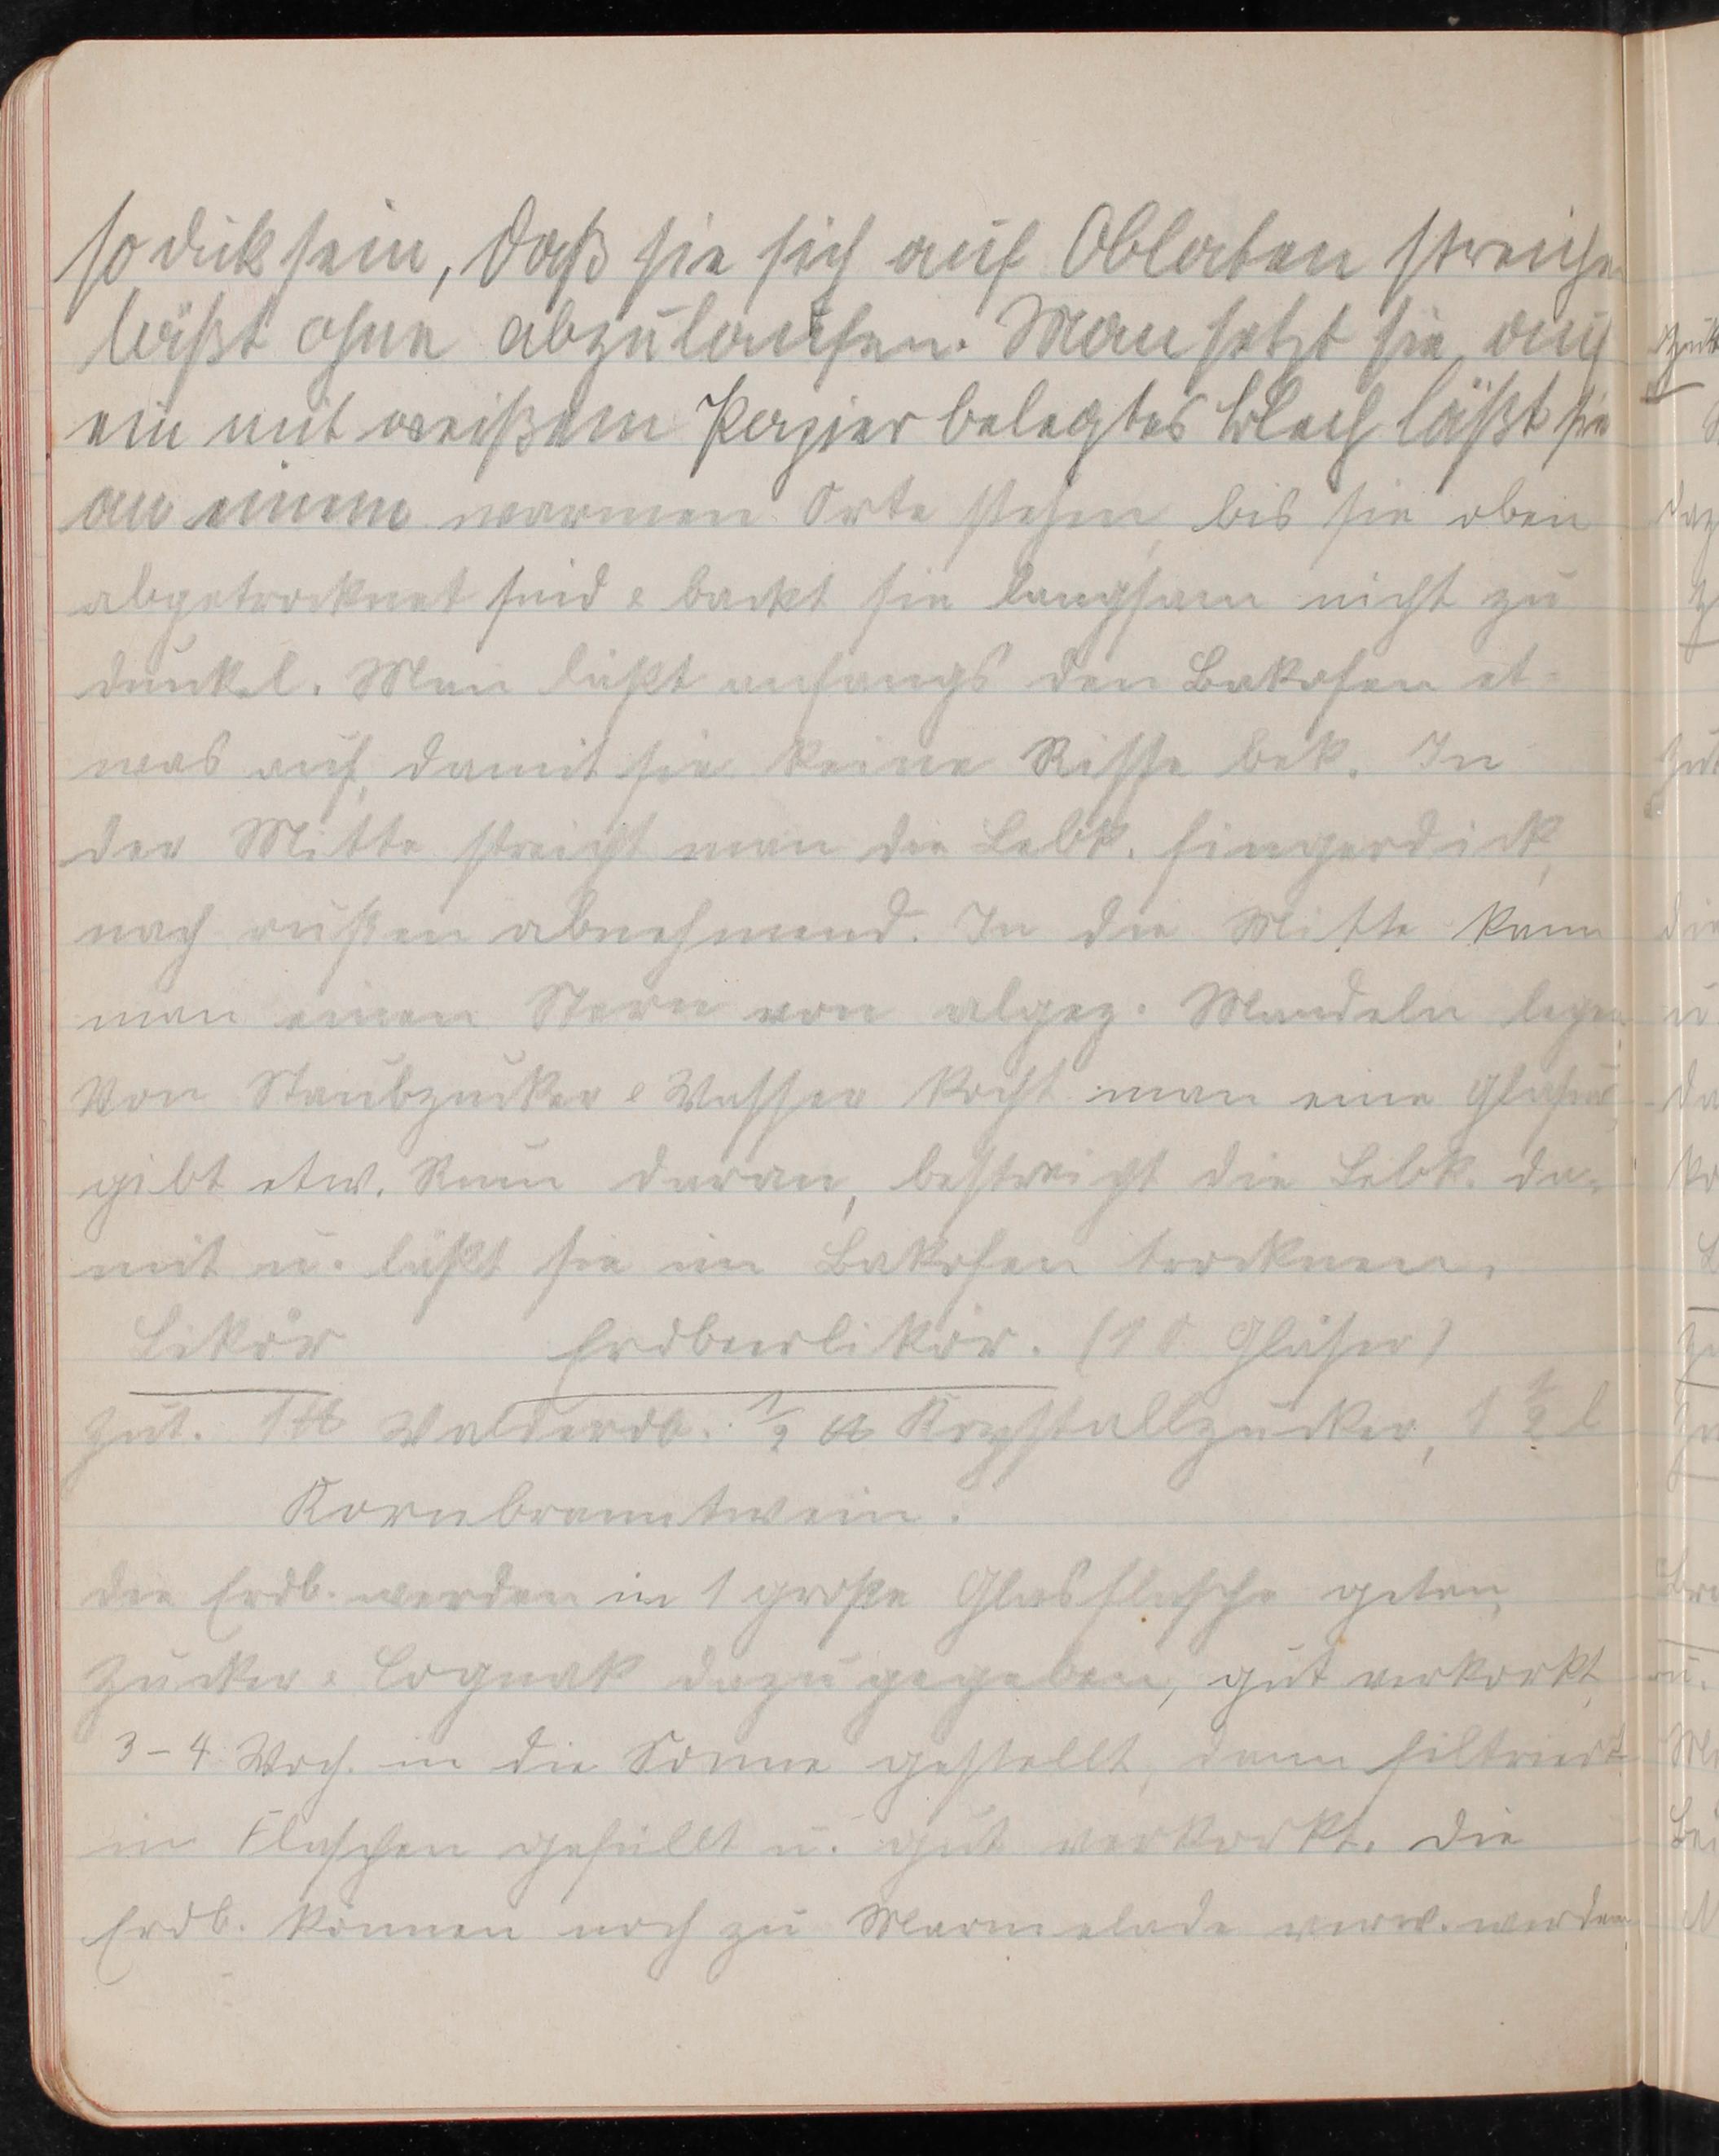 so dick sein, daß sie sich auf Oblaten streichen
läßt ohne abzulaufen. Man setzt sie auf
ein mit weißem Papier belegtes Blech läßt sie
an einem warmen Orte stehen, bis sie oben
abgetrocknet sind & backt sie langsam nicht zu
dunkel. Man läßt anfangs den Bakofen et-
was auf, damit sie keine Risse bek. In
der Mitte streicht man die Lebk. fingerdick,
nach außen abnehmend. In die Mitte kann
man einen Stern von abgez. Mandeln legen.
Von Staubzucker & Wasser kocht man eine Glasur,
gibt etw. Rum daran, bestreicht die Lebk. da-
mit u. läßt sie im Bakofen trocknen.
Likör Erdbeerlikör. (10 Gläser)
Zut. 1 ℔ Walderdb. ½ ℔ Krystallzucker, 1 ½ l
Kornbranntwein.
die Erdb. werden in 1 große Glasflasche getan,
Zucker & Cognak dazugegeben, gut verkorkt,
3-4 Woch. in die Sonne gestellt, dann filtriert
in Flaschen gefüllt u. gut verkorkt. Die
Erdb. können noch zu Marmelade verw. werden.